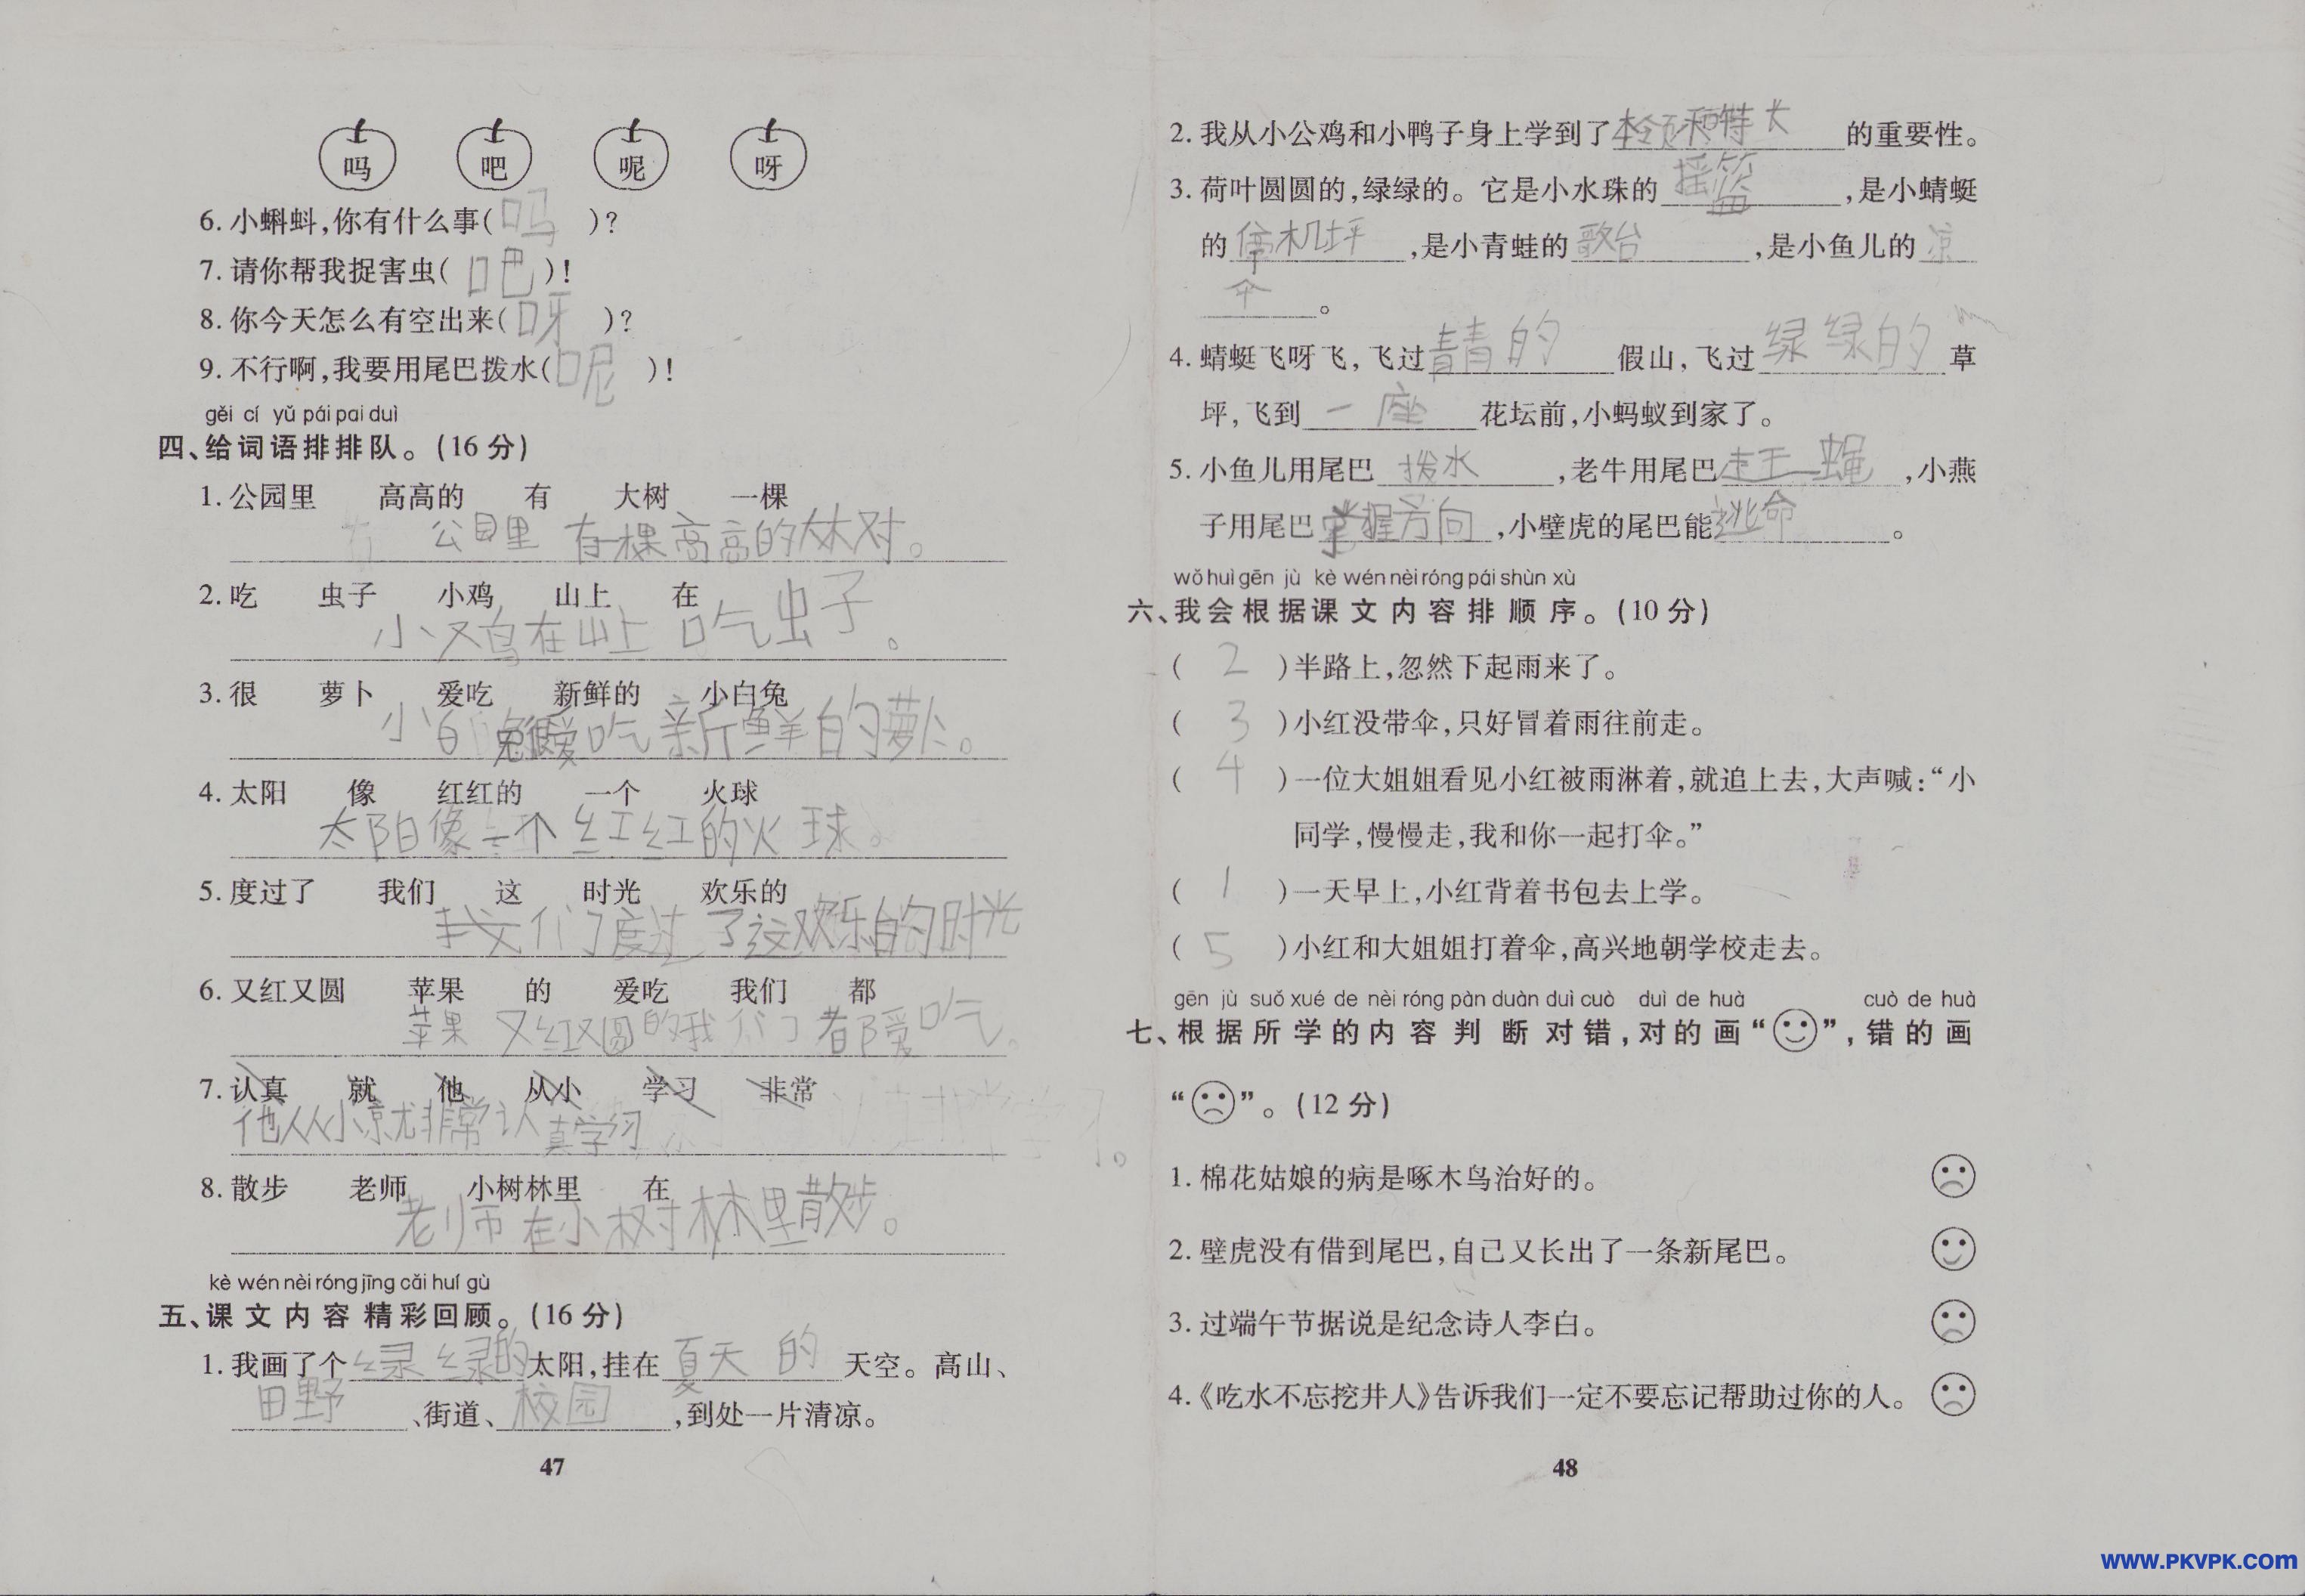 吗 吧 呢 呀
6. 小蝌蚪,你有什么事( 吗 )?
7. 请你帮我捉害虫( 吧 )!
8. 你今天怎么有空出来( 呀 )?
9. 不行啊,我要用尾巴拨水( 呢 )!
gěi cí yǔ pái pai duì
四、给词语排排队。(16 分)
1. 公园里 高高的 有 大树 一棵
公园里 有一棵高高的大树。
2. 吃 虫子 小鸡 山上 在
小鸡在山上吃虫子。
3. 很 萝卜 爱吃 新鲜的 小白兔
小白兔很爱吃新鲜的萝卜。
4. 太阳 像 红红的 一个 火球
太阳像一个红红的火球。
5. 度过了 我们 这 时光 欢乐的
我们度过了这欢乐的时光
6. 又红又圆 苹果 的 爱吃 我们 都
苹果又红又圆的我们都爱吃。
7. 认真 就 他 从小 学习 非常
他从小就非常认真学习
8. 散步 老师 小树林里 在
老师在小树林里散步。
kè wén nèi róng jīng cǎi huí gù
五、课文内容精彩回顾。(16 分)
1. 我画了个绿绿的太阳,挂在夏天的天空。高山、
田野、街道、校园,到处一片清凉。
47
2. 我从小公鸡和小鸭子身上学到了 的重要性。
3. 荷叶圆圆的,绿绿的。它是小水珠的摇篮,是小蜻蜓
的停机坪,是小青蛙的歌台,是小鱼儿的凉
伞。
4. 蜻蜓飞呀飞,飞过青青的假山,飞过绿绿的草
坪,飞到一座花坛前,小蚂蚁到家了。
5. 小鱼儿用尾巴拨水,老牛用尾巴 蝇,小燕
子用尾巴掌握方向,小壁虎的尾巴能逃命。
wǒ huì gēn jù kè wén nèi róng pái shùn xù
六、我会根据课文内容排顺序。(10 分)
( 2 )半路上,忽然下起雨来了。
( 3 )小红没带伞,只好冒着雨往前走。
( 4 )一位大姐姐看见小红被雨淋着,就追上去,大声喊:“小
同学,慢慢走,我和你一起打伞。”
( 1 )一天早上,小红背着书包去上学。
( 5 )小红和大姐姐打着伞,高兴地朝学校走去。
gēn jù suǒ xué de nèi róng pàn duàn duì cuò duì de huà cuò de huà
七、根据所学的内容判断对错,对的画“ ”,错的画
“ ”。(12 分)
1. 棉花姑娘的病是啄木鸟治好的。
2. 壁虎没有借到尾巴,自己又长出了一条新尾巴。
3. 过端午节据说是纪念诗人李白。
4.《吃水不忘挖井人》告诉我们一定不要忘记帮助过你的人。
48
WWW.PKVPK.COm